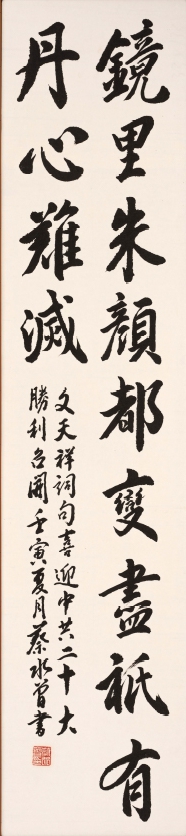 鏡里朱顏都變盡祇有
丹心難滅
文天祥詞句喜迎中共二十大
勝利召開壬寅夏月蔡水曾書